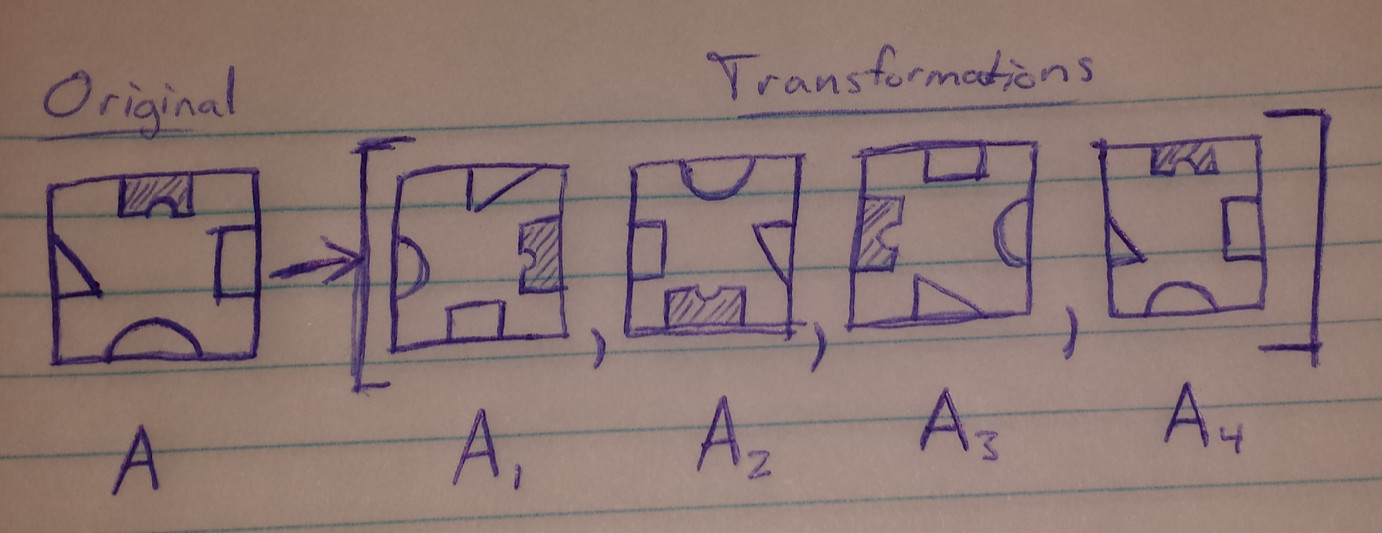 Original Transformations
A A₁ , A₂ , A₃ , A₄